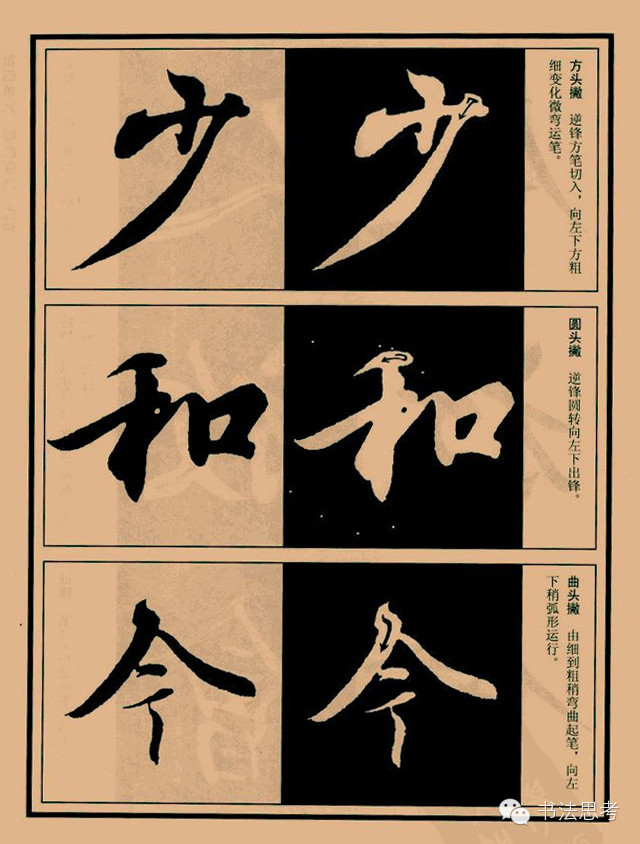 方头撇 逆锋方笔切入，向左下方粗
细变化微弯运笔。
少 少
圆头撇 逆锋圆转向左下出锋。
和 和
曲头撇 由细到粗稍弯曲起笔，向左
下稍弧形运行。
今 今
书法思考